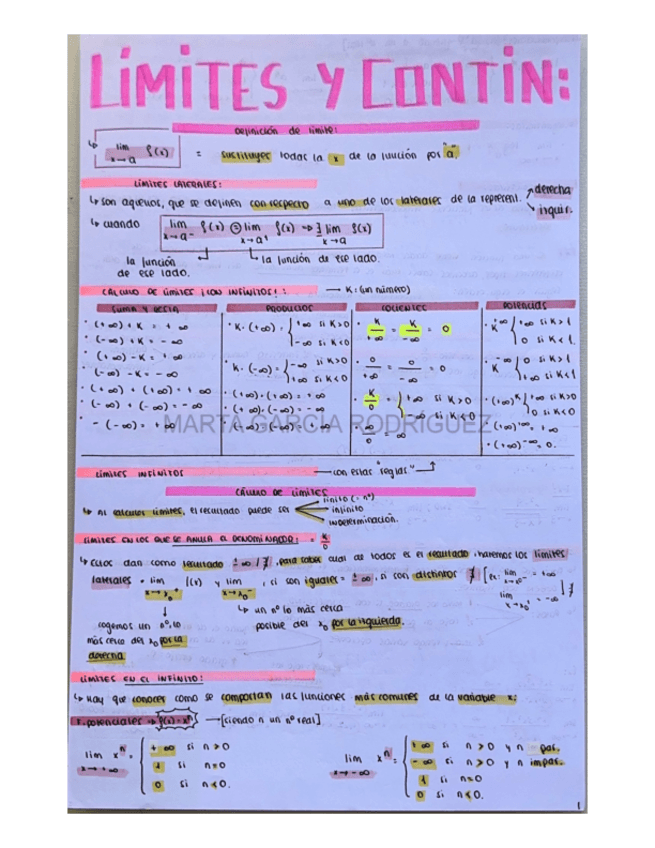 LÍMITES Y CONTIN:
Definición de límite:
↳ lim x→a f(x) = sustituyes todas la x de la función por "a".
LÍMITES LATERALES:
↳ son aquellos, que se definen con respecto a uno de los laterales de la represent. → derecha
→ izquier.
↳ cuando lim x→a⁻ f(x) = lim x→a⁺ f(x) ⇒ ∃ lim x→a f(x)
la función ↳ la función de ese lado.
de ese lado.
CALCULO DE LÍMITES ¡CON INFINITOS!: → K: (un número)
SUMA Y RESTA PRODUCTOS COCIENTES POTENCIAS
· (+∞) + K = +∞
· (-∞) + K = -∞
· (+∞) - K = +∞
· (-∞) - K = -∞
· (+∞) + (+∞) = +∞
· (-∞) + (-∞) = -∞
· -(-∞) = +∞
· K·(+∞) = { +∞ si K>0
-∞ si K<0
K·(-∞) = { -∞ si K>0
+∞ si K<0
· (+∞)·(+∞) = +∞
· (+∞)·(-∞) = -∞
· (-∞)·(-∞) = +∞
· K/+∞ = K/-∞ = 0
· 0/+∞ = 0/-∞ = 0
· K/0 = { +∞ si K>0
-∞ si K<0
· ∞/0 = ∞
· K^+∞ { +∞ si K>1
0 si K<1
· K^-∞ { 0 si K>1
+∞ si K<1
· (+∞)^K { +∞ si K>0
0 si K<0
· (+∞)^+∞ = +∞
· (+∞)^-∞ = 0.
MARTA GARCÍA RODRIGUEZ
LÍMITES INFINITOS → con estas "reglas"
CÁLCULO DE LÍMITES
↳ Al calcular límites, el resultado puede ser finito (= nº)
infinito
indeterminación.
LÍMITES EN LOS QUE SE ANULA EL DENOMINADOR: = K/0
↳ Estos dan como resultado ±∞ / ∄, para saber cual de todos es el resultado, haremos los límites
laterales = lim x→x₀⁺ f(x) y lim x→x₀⁻, si son iguales = ±∞, si son distintos ∄ [Ex: lim x→x₀⁻ = +∞
lim x→x₀⁺ = -∞ } ∄
cogemos un nº, lo
más cerca del x₀ por la
derecha
↳ un nº lo más cerca
posible del x₀ por la izquierda.
LÍMITES EN EL INFINITO:
↳ Hay que conocer como se comportan las funciones más comunes de la variable x:
F. potenciales → f(x) = xⁿ → [siendo n un nº real]
lim x→+∞ xⁿ = { +∞ si n>0
1 si n=0
0 si n<0.
lim x→-∞ xⁿ = { +∞ si n>0 y n par.
-∞ si n>0 y n impar.
1 si n=0
0 si n<0.
1